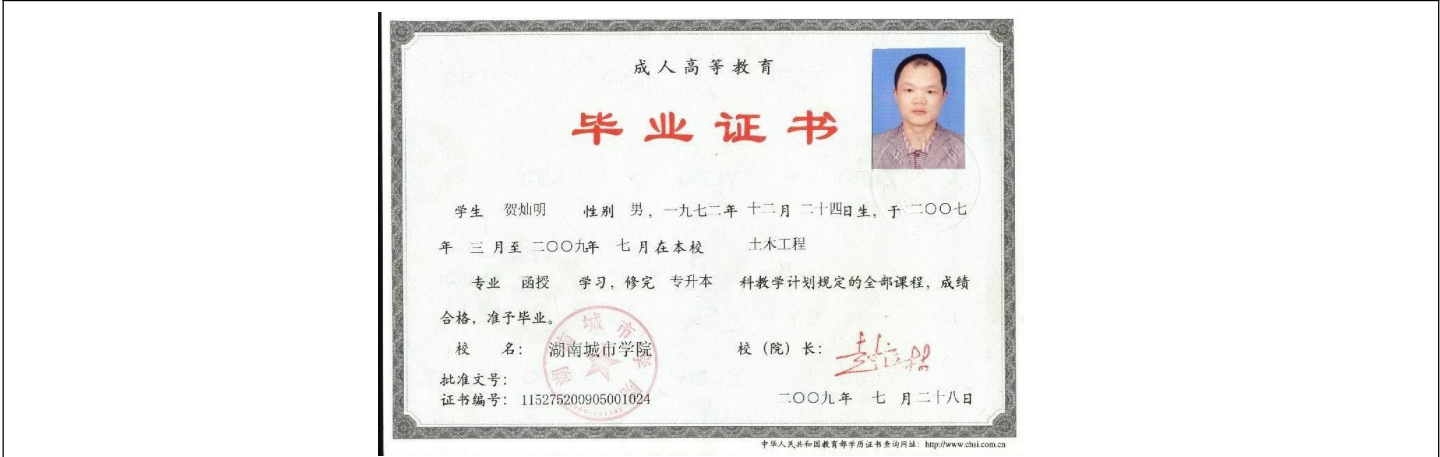 成人高等教育
毕业证书
学生 贺灿明 性别 男，一九七二年 十二月 二十四日生，于 二〇〇七
年 三 月至 二〇〇九年 七 月在本校 土木工程
专业 函授 学习，修完 专升本 科教学计划规定的全部课程，成绩
合格，准予毕业。
校 名： 湖南城市学院 校（院）长：
批准文号：
证书编号： 115275200905001024 二〇〇九年 七 月二十八日
中华人民共和国教育部学历证书查询网址： http://www.chsi.com.cn